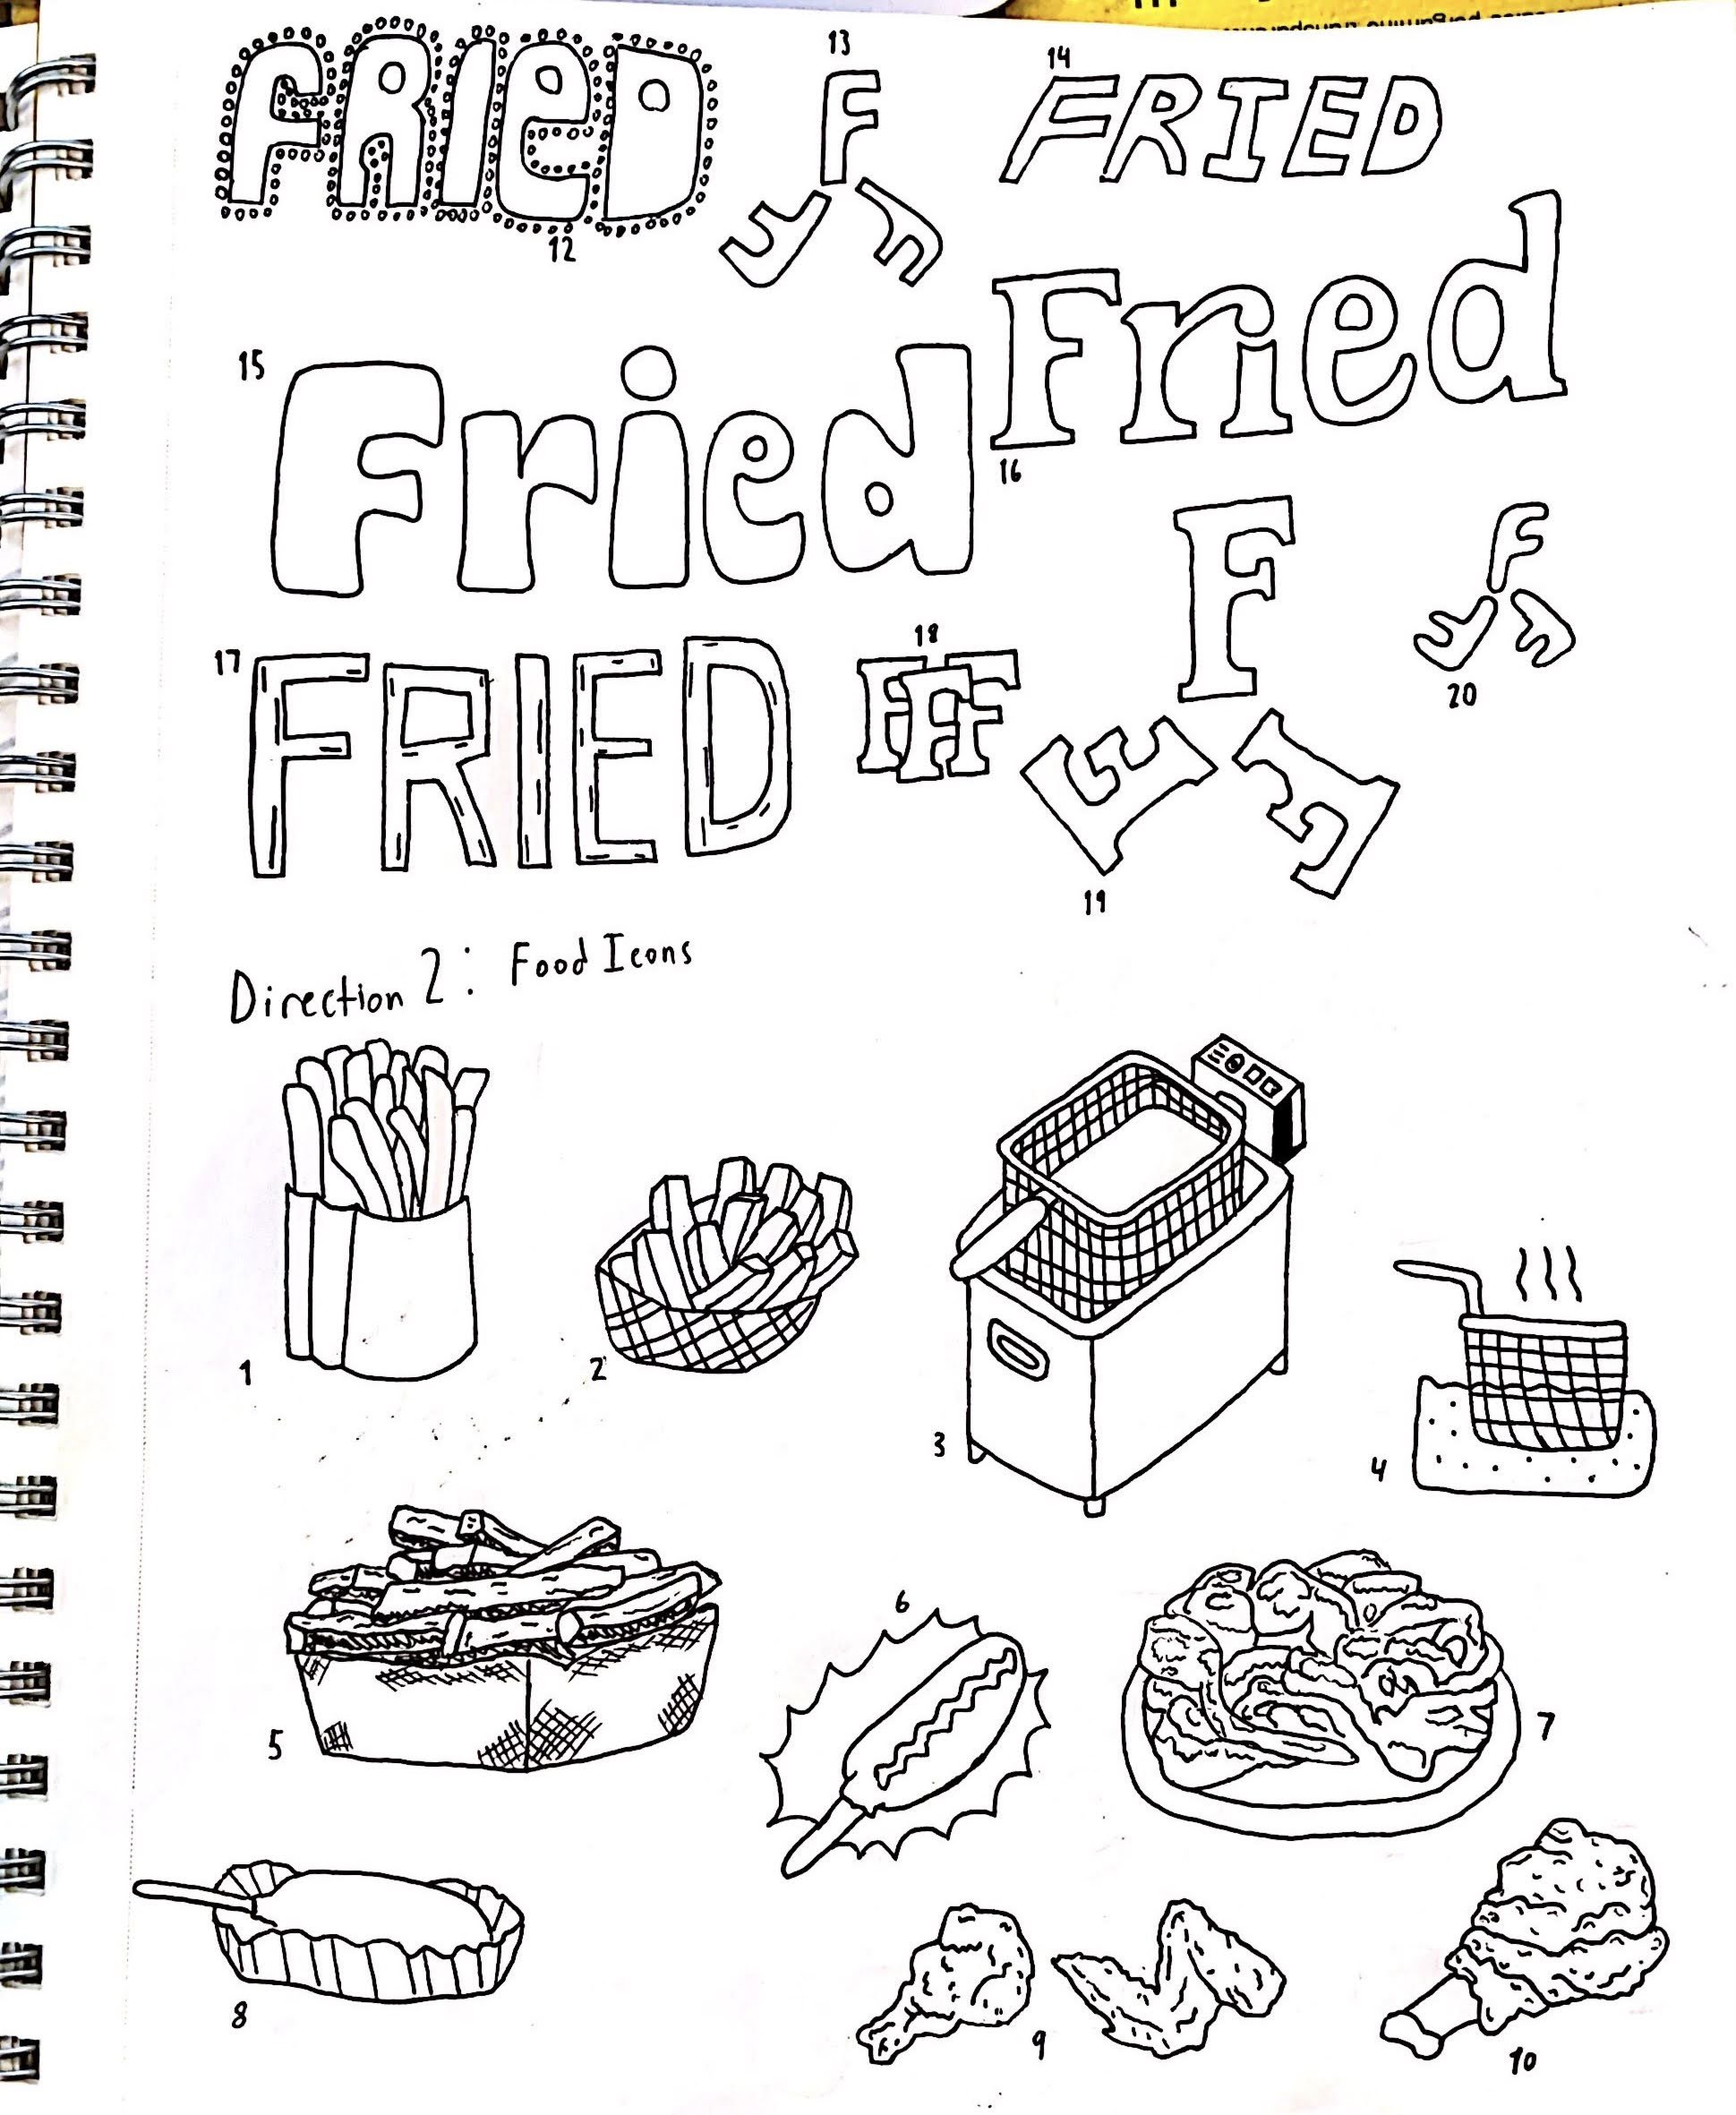 FRIeD
12
13
F
F F
14
FRIED
15
Fried
Fried
16
17
FRIED
18
FFF
F
F F
19
F
F F
20
Direction 2: Food Icons
1
2
3
4
5
6
7
8
9
10